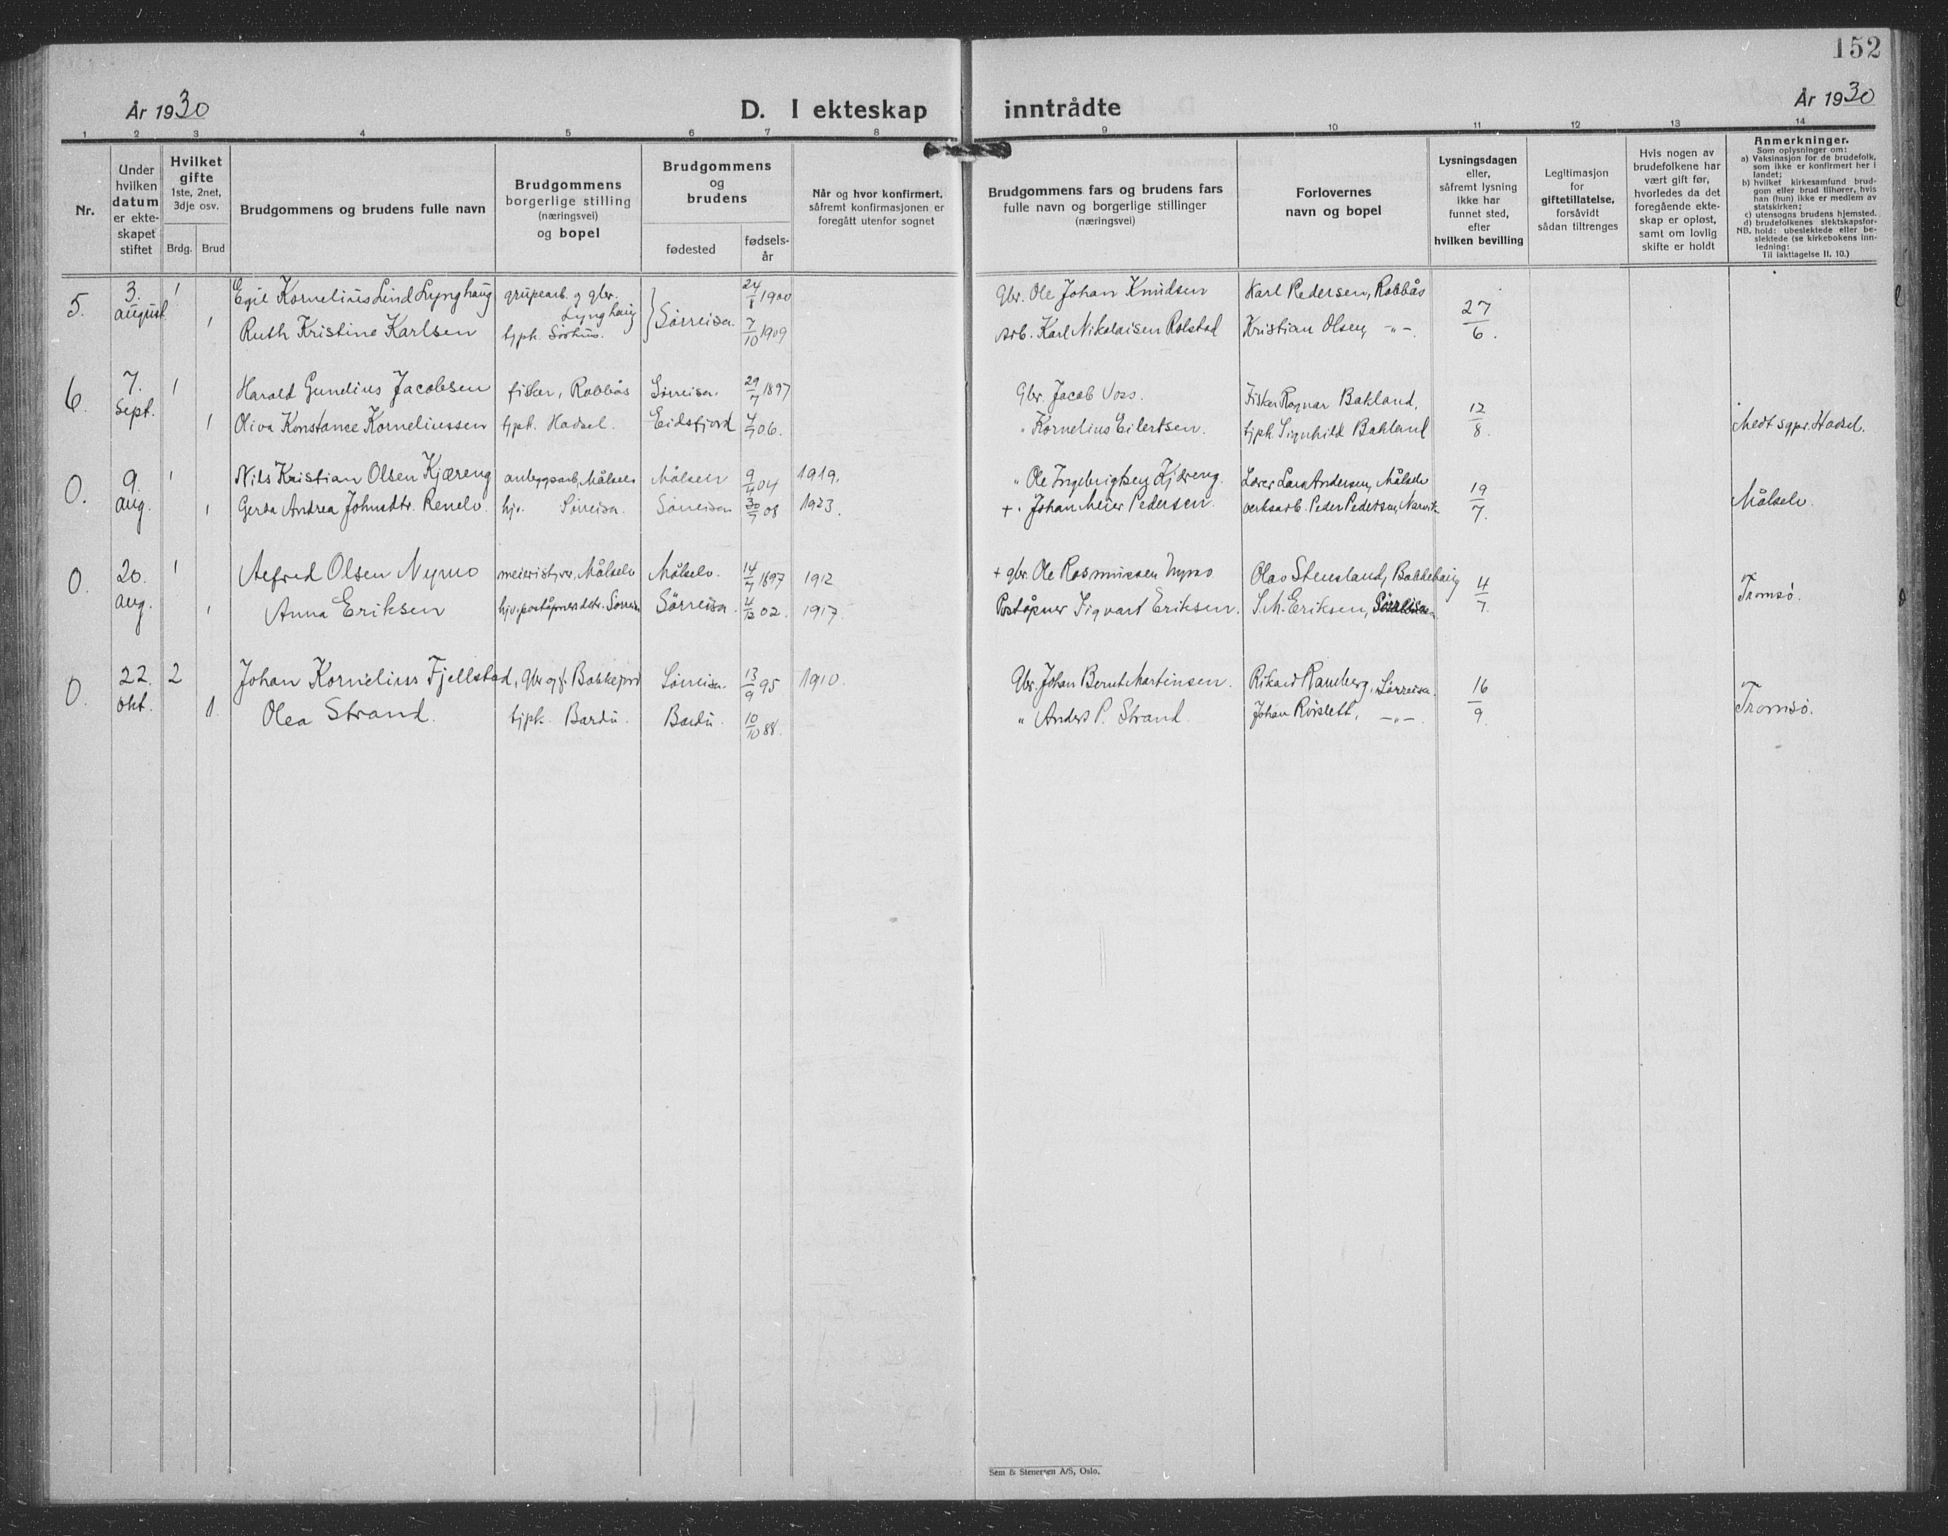 152
År 1930 D. I ekteskap inntrådte År 1930
1 2 3 4 5 6 7 8 9 10 11 12 13 14
Nr.
Under
hvilken
datum
er ekte-
skapet
stiftet
Hvilket
gifte
1ste, 2net,
3dje osv.
Brdg. Brud
Brudgommens og brudens fulle navn
Brudgommens
borgerlige stilling
(næringsvei)
og bopel
Brudgommens
og
brudens
fødested
fødsels-
år
Når og hvor konfirmert,
såfremt konfirmasjonen er
foregått utenfor sognet
Brudgommens fars og brudens fars
fulle navn og borgerlige stillinger
(næringsvei)
Forlovernes
navn og bopel
Lysningsdagen
eller,
såfremt lysning
ikke har
funnet sted,
efter
hvilken bevilling
Legitimasjon
for
giftetillatelse,
forsåvidt
sådan tiltrenges
Hvis nogen av
brudefolkene har
vært gift før,
hvorledes da det
foregående ekte-
skap er opløst,
samt om lovlig
skifte er holdt
Anmerkninger.
Som oplysninger om:
a) Vaksinasjon for de brudefolk,
som ikke er konfirmert her i
landet;
b) hvilket kirkesamfund brud-
gom eller brud tilhører, hvis
han (hun) ikke er medlem av
statskirken;
c) utensogns brudens hjemsted.
d) brudefolkenes slektskapsfor-
NB. hold: ubeslektede eller be-
slektede (se kirkebokens inn-
ledning:
Til iakttagelse II. 10.)
5. 3. august 1 Egil Kornelius Lind Lynghaug grupearb. og gbr. Lynghaug Sørreisa 24/8 1900 Gbr. Ole Johan Knudsen Karl Pedersen, Rabbås 27/6.
1 Ruth Kristine Karlsen tjpk. 7/10 1909 Arb. Karl Nikolaisen Rolstad Kristian Olsen, -"-.
6. 7. Sept. 1 Harald Gundius Jacobsen fisker, Rabbås Sørreisa 29/7 1897 Gbr. Jacob Voss. Fisker Ragnar Bakland, 12/8.
1 Oliva Konstance Korneliussen tjpk. Hadsel. Eidsfjord 4/7 06. " Kornelius Eilertsen. tjpk Signhild Bakland Hadsel.
0. 9. aug. 1 Nils Kristian Olsen Kjæreng anleggsarb, Målselv Målselv 9/4 04 1919. " Ole Ingebrigtsen Kjæreng. Lærer Lars Andersen, Målselv 19/7.
1 Gerda Andrea Johnsdtr. Renelv. hjv. Sørreisa. Sørreisa 30/7 08 1923. + " Johan Meier Pedersen. verksarb. Peder Pedersen, Narvik Målselv.
0. 20. aug. 1 Alfred Olsen Nymo meieristyrer, Målselv Målselv. 14/7 1897 1912 + gbr. Ole Rasmussen Nymo Olav Stensland, Bakkehaug 4/7.
1 Anna Eriksen hjv. poståpners datr. Sørreisa Sørreisa. 4/12 02. 1917. Poståpner Sigvart Eriksen. S. M. Eriksen, Sørreisa Tromsø.
0. 22. okt. 2 Johan Kornelius Fjellstad, Gbr og f. Bakkejord Sørreisa. 13/9 95 1910. Gbr. Johan Bernt Martinsen. Rikard Ramberg, Sørreisa. 16/9.
1. Olea Strand. tjpk. Bardu. Bardu. 10/10 88. " Anders P. Strand. Johan Rørslett, -"-. Tromsø.
Sem & Stenersen A/S, Oslo.